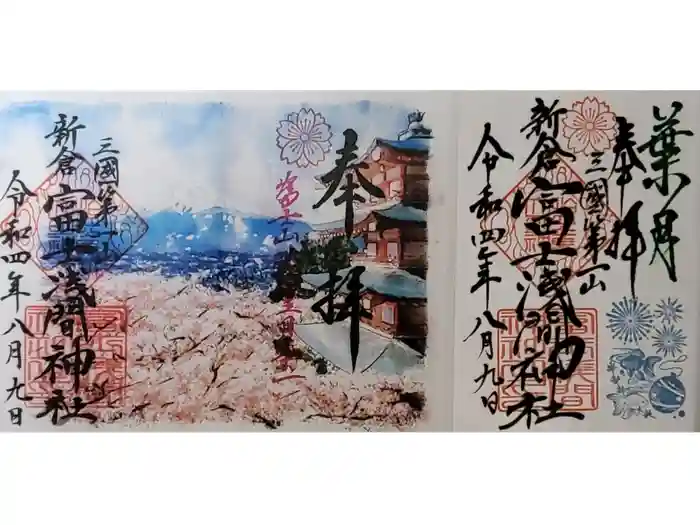 奉拜
三國第一山
新倉富士浅間神社
令和四年八月九日
葉月
奉拜
三國第一山
新倉富士浅間神社
令和四年八月九日